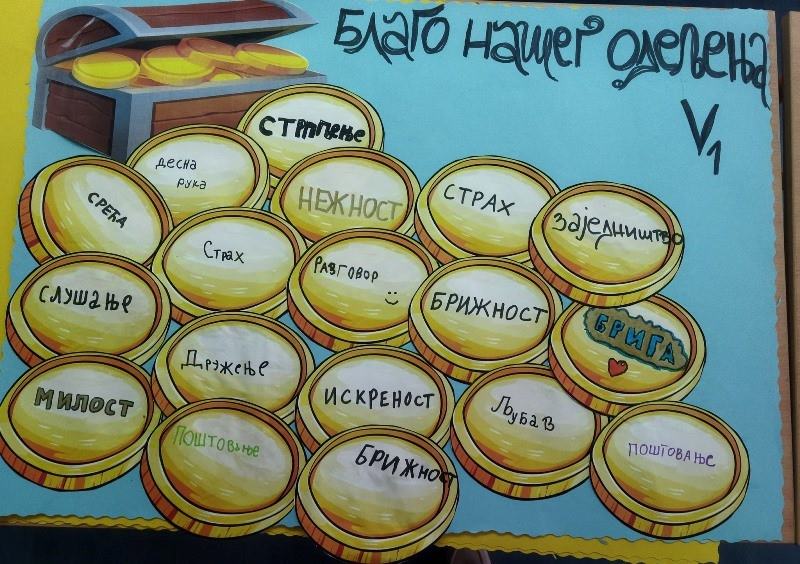 Благо нашег одељења
V1
СТРПЉЕЊЕ
десна
рука
НЕЖНОСТ
СТРАХ
Заједништво
СРЕЋА
Страх
РАЗГОВОР
БРИЖНОСТ
БРИГА
СЛУШАЊЕ
Дружење
ИСКРЕНОСТ
Љубав
МИЛОСТ
Поштовање
БРИЖНОСТ
ПОШТОВАЊЕ